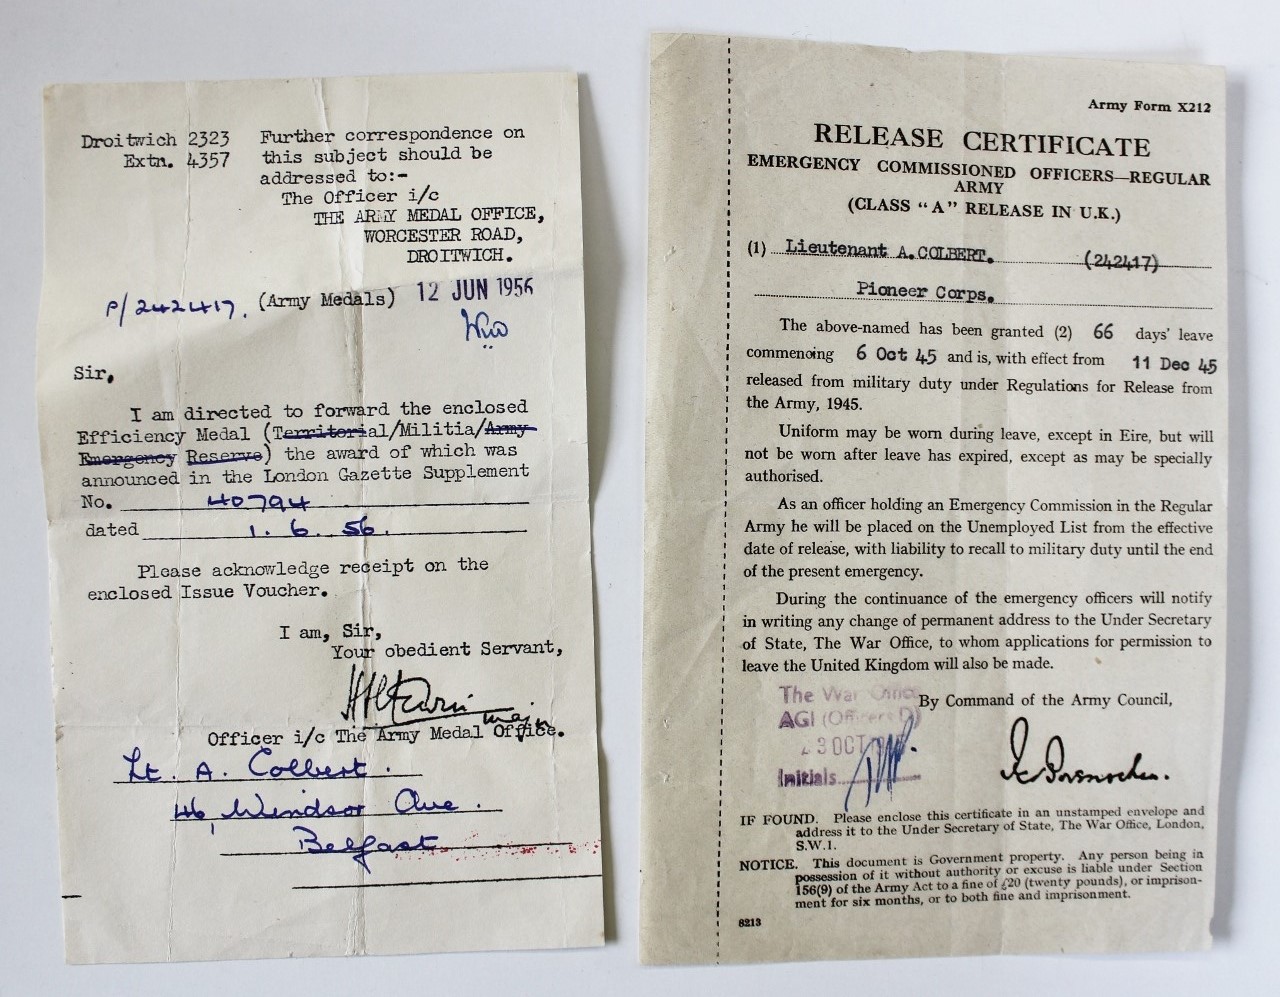 Droitwich 2323
Extn. 4357
Further correspondence on
this subject should be
addressed to:-
The Officer i/c
THE ARMY MEDAL OFFICE,
WORCESTER ROAD,
DROITWICH.
P/242417. (Army Medals) 12 JUN 1956
Sir,
I am directed to forward the enclosed
Efficiency Medal (Territorial/Militia/Army
Emergency Reserve) the award of which was
announced in the London Gazette Supplement
No. 40794
dated 1. 6. 56.
Please acknowledge receipt on the
enclosed Issue Voucher.
I am, Sir,
Your obedient Servant,
Major
Officer i/c The Army Medal Office.
Lt. A. Colbert.
46, Windsor Ave.
Belfast
Army Form X212
RELEASE CERTIFICATE
EMERGENCY COMMISSIONED OFFICERS—REGULAR
ARMY
(CLASS “A” RELEASE IN U.K.)
(1) Lieutenant A. COLBERT. (242417)
Pioneer Corps.
The above-named has been granted (2) 66 days' leave
commencing 6 Oct 45 and is, with effect from 11 Dec 45
released from military duty under Regulations for Release from
the Army, 1945.
Uniform may be worn during leave, except in Eire, but will
not be worn after leave has expired, except as may be specially
authorised.
As an officer holding an Emergency Commission in the Regular
Army he will be placed on the Unemployed List from the effective
date of release, with liability to recall to military duty until the end
of the present emergency.
During the continuance of the emergency officers will notify
in writing any change of permanent address to the Under Secretary
of State, The War Office, to whom applications for permission to
leave the United Kingdom will also be made.
By Command of the Army Council,
The War Office
AG1 (Officers D)
3 OCT
Initials
IF FOUND. Please enclose this certificate in an unstamped envelope and
address it to the Under Secretary of State, The War Office, London,
S.W.1.
NOTICE. This document is Government property. Any person being in
possession of it without authority or excuse is liable under Section
156(9) of the Army Act to a fine of £20 (twenty pounds), or imprison-
ment for six months, or to both fine and imprisonment.
8213